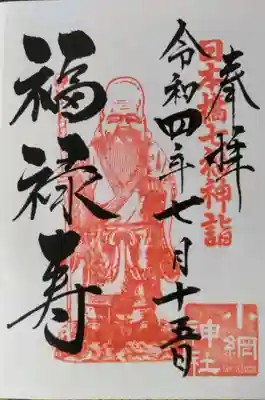 奉拝
日本橋七福神詣
令和四年七月十五日
福禄寿
小網
神社